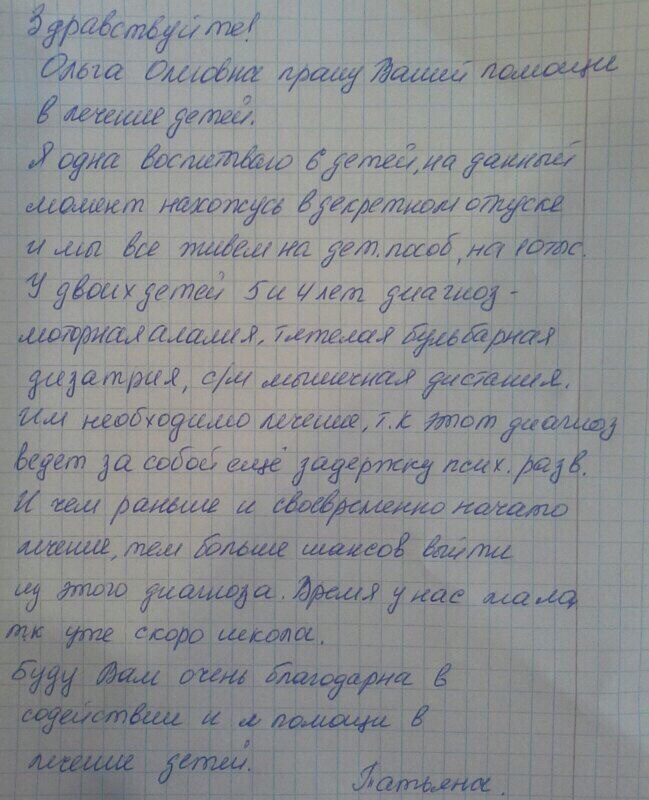 Здравствуйте!
Ольга Олеговна прашу Вашей помощи
в лечение детей.
Я одна воспитываю 6 детей, на данный
момент нахожусь в декретном отпуске
и мы все живем на дет. пособ, на 10тыс.
У двоих детей 5 и 4 лет диагноз -
моторная алалия, тяжелая бульбарная
дизатрия, с/м мышечная дистания.
Им необходимо лечение, т.к этот диагноз
ведет за собой ещё задержку псих. разв.
И чем раньше и своевременно начато
лечение, тем больше шансов выйти
из этого диагноза. Время у нас мала,
т.к уже скоро школа.
Буду Вам очень благодарна в
содействии и помощи в
лечение детей.
Татьяна.